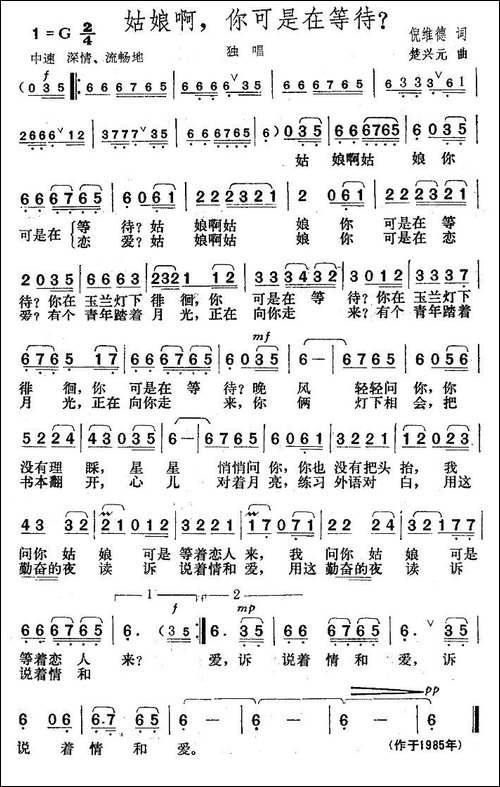 姑娘啊，你可是在等待？
1=G 2/4
倪维德 词
中速 深情、流畅地
独唱
楚兴元 曲
f
(035 666765 666∨35 666765 3333∨61
2666∨12 3777∨35 666765 6) 035 666765 6035
姑 娘啊姑 娘你
666765 6061 222321 2 061 222321
可是在 等 待？姑 娘啊姑 娘 你 可是在 等
恋 爱？姑 娘啊姑 娘 你 可是在 恋
2035 6765 2321 12 333432 3012 3337
待？你在 玉兰灯下 徘 徊，你 可是在 等 待？你在 玉兰灯下
爱？有个 青年踏着 月 光，正在 向你走 来？有个 青年踏着
mf
6765 17 666765 6035 6- 6765 6056
徘 徊，你 可是在 等 待？晚 风 轻轻问 你，你
月 光，正在 向你走 来，你 俩 灯下相 会，把
5224 43035 6- 6765 6061 3221 12023
没有理 睬，星 星 悄悄问 你，你也 没有把头 抬，我
书本翻 开，心 儿 对着月 亮，练习 外语对 白，用这
43 32 21012 3221 17071 22 24 32177
问你 姑 娘 可是 等着恋人 来，我 问你 姑 娘 可是
勤奋的夜 读 诉 说着情和 爱，用这 勤奋的夜 读 诉
1 2
f mp
666765 6. (35 6. 35 66 6765 6.∨35
等着恋 人 来？ 爱，诉 说着 情 和 爱，诉
说着情 和
pp
6 06 6.7 65 6- 6- 6- 6-
说 着 情 和 爱。
(作于1985年)